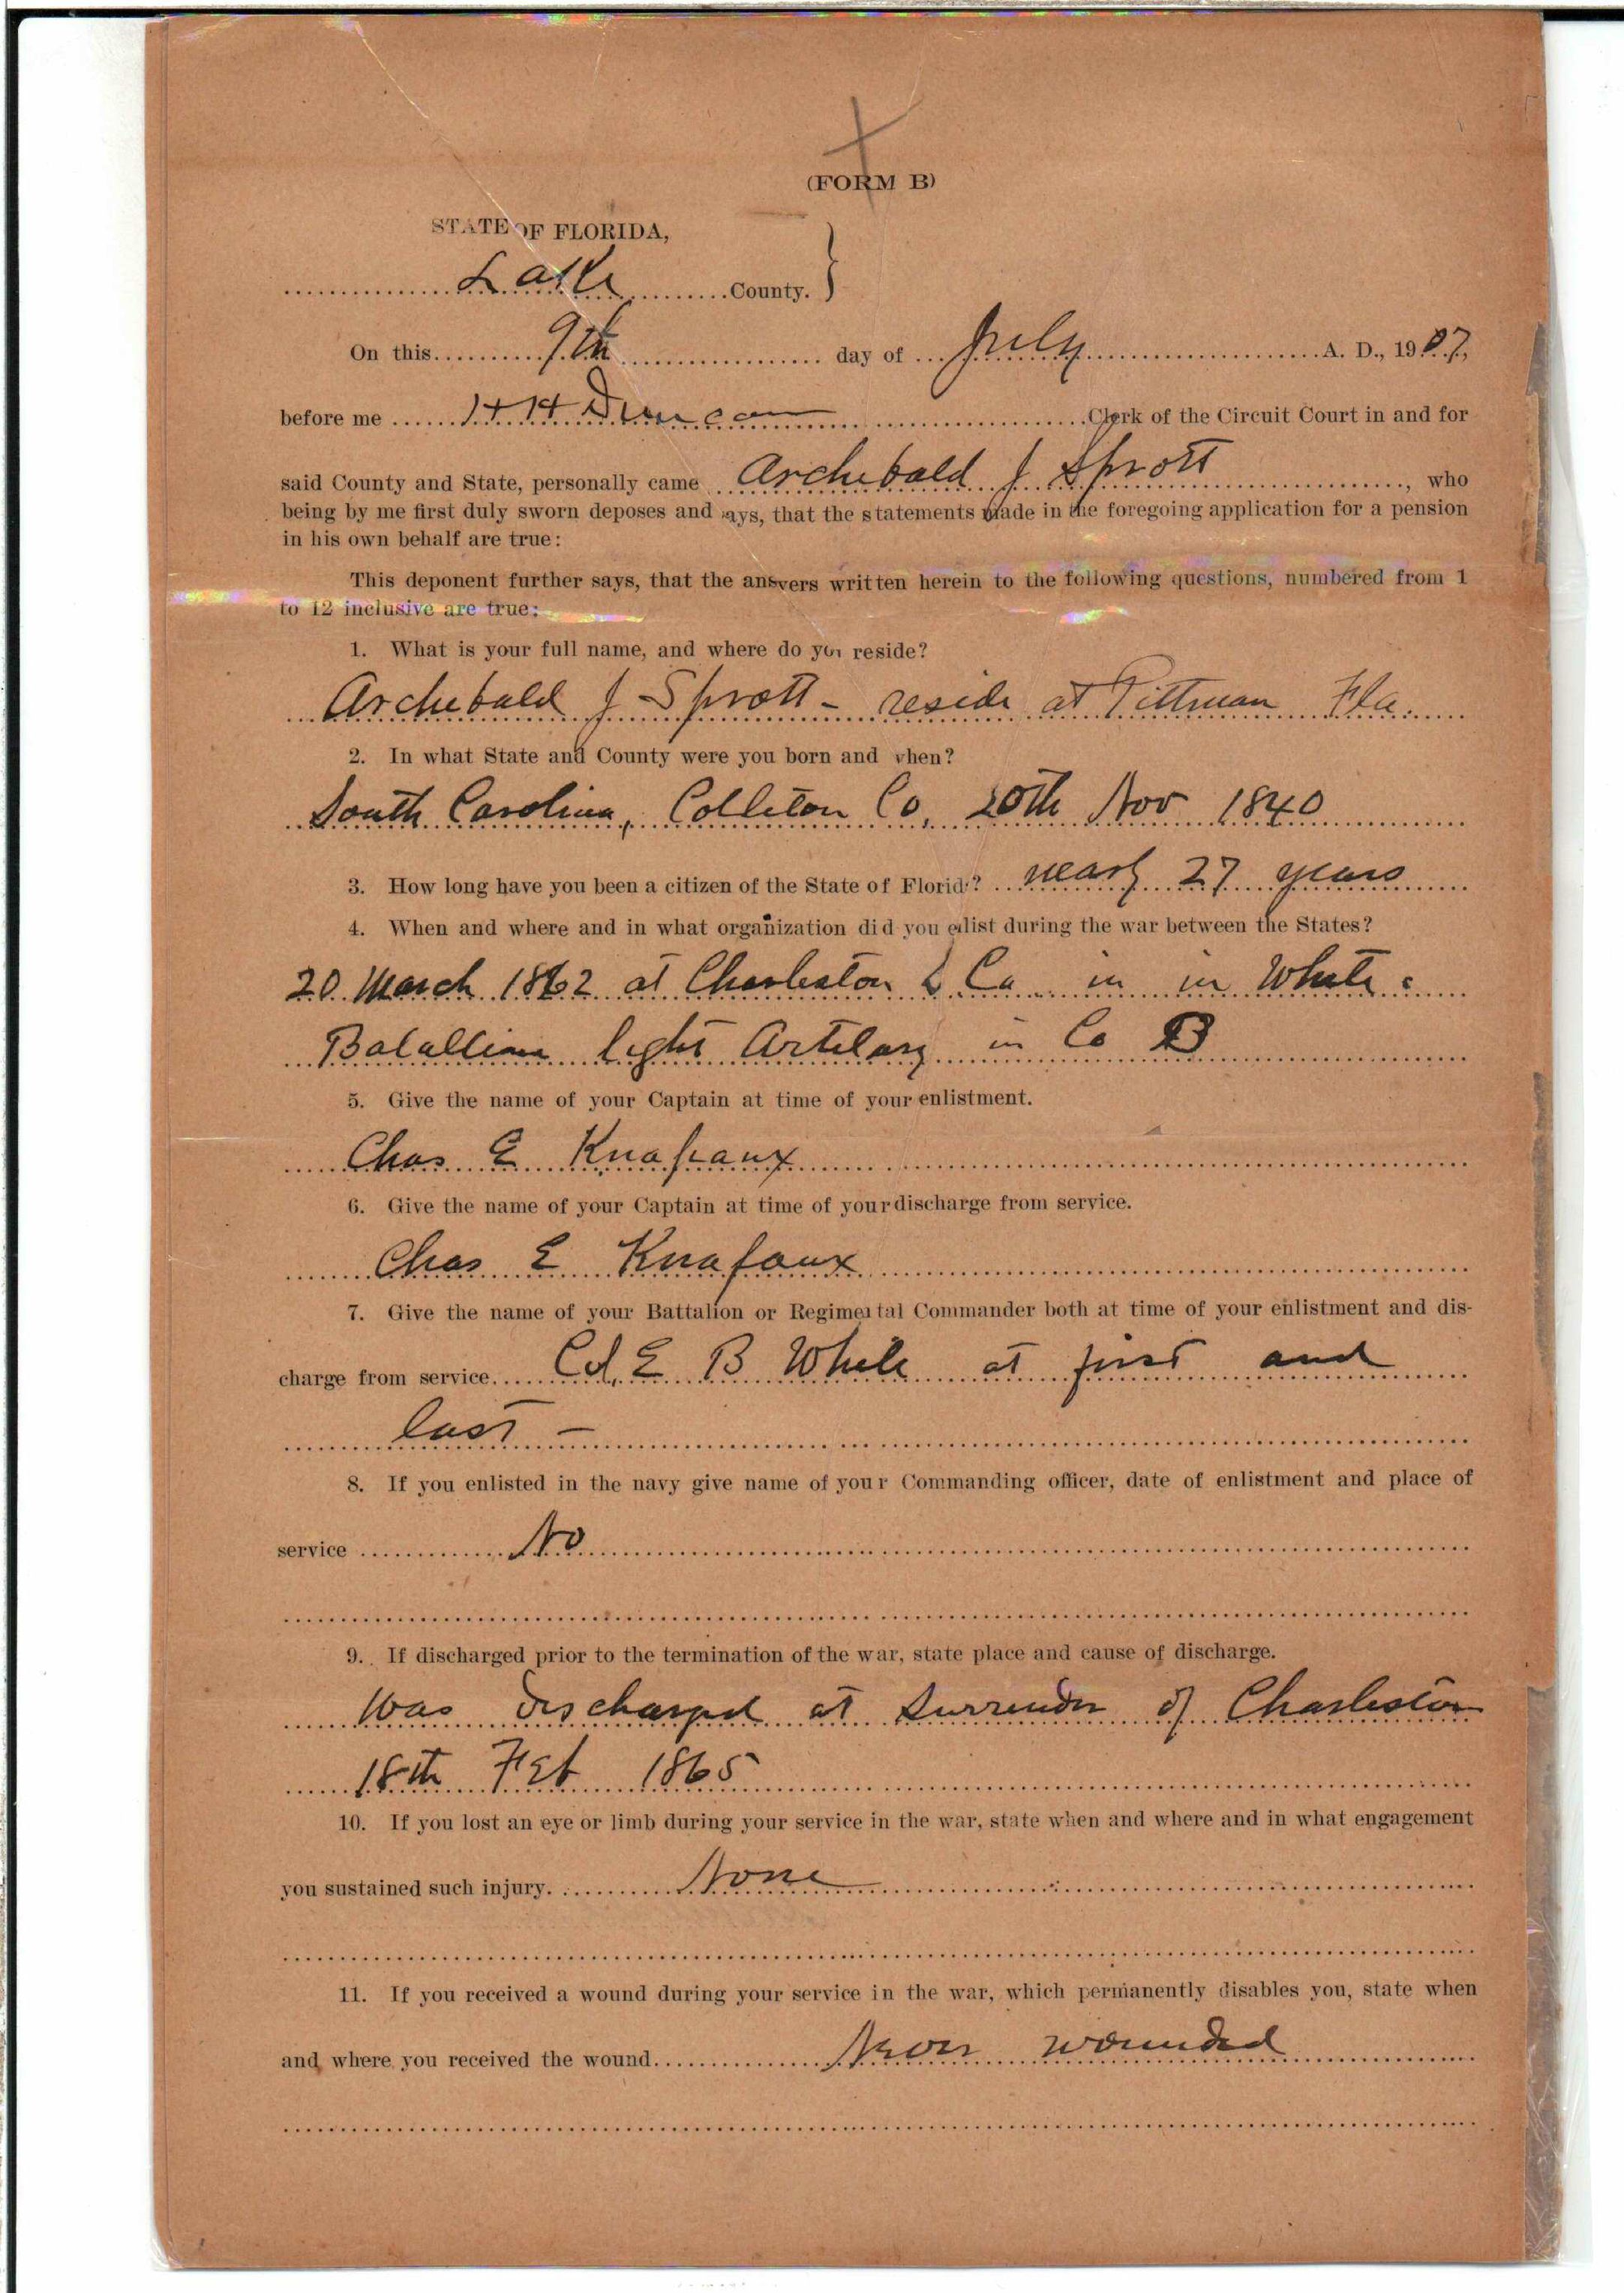 (FORM B)
STATE OF FLORIDA,
Lake County.
On this 9th day of July A. D., 1907,
before me H H Duncan Clerk of the Circuit Court in and for
said County and State, personally came Archebald J Sprott, who
being by me first duly sworn deposes and says, that the statements made in the foregoing application for a pension
in his own behalf are true:
This deponent further says, that the answers written herein to the following questions, numbered from 1
to 12 inclusive are true:
1. What is your full name, and where do you reside?
Archebald J Sprott - reside at Pittman Fla.
2. In what State and County were you born and when?
South Carolina, Colleton Co, 20th Nov 1840
3. How long have you been a citizen of the State of Florida? nearly 27 years
4. When and where and in what organization did you enlist during the war between the States?
20 March 1862 at Charleston in in White
Batallion light Artilary in Co B
5. Give the name of your Captain at time of your enlistment.
Chas E
6. Give the name of your Captain at time of your discharge from service.
Chas E
7. Give the name of your Battalion or Regimental Commander both at time of your enlistment and dis-
charge from service. Col. E B White at first and
last -
8. If you enlisted in the navy give name of your Commanding officer, date of enlistment and place of
service No
9. If discharged prior to the termination of the war, state place and cause of discharge.
Was discharged at Surrender of Charleston
18th Feb 1865
10. If you lost an eye or limb during your service in the war, state when and where and in what engagement
you sustained such injury. None
11. If you received a wound during your service in the war, which permanently disables you, state when
and where you received the wound. wounded